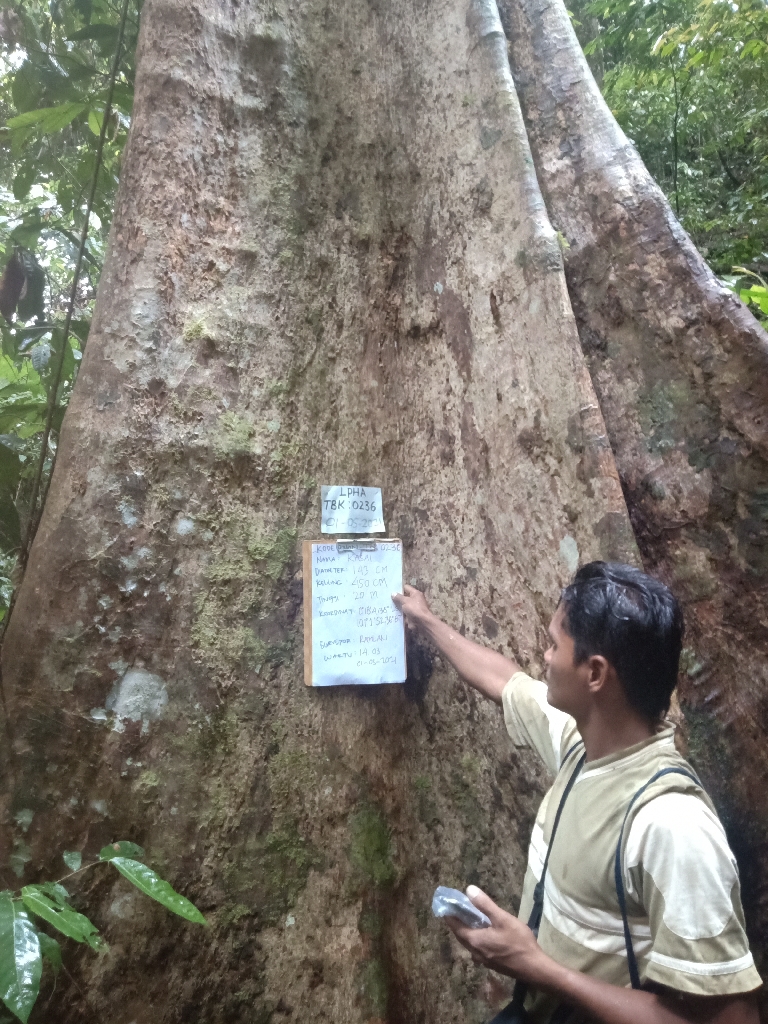 LPHA
TBK:0236
01-05-2021
KODE 0236
NAMA
DIAMETER: 143 CM
KELILING: 450 CM
TINGGI: 20 M
KOORDINAT:
SURVEYOR: RAMLAN
WAKTU: 14.03
01-05-2021